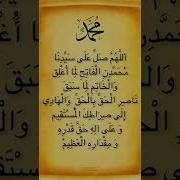 محمد
اللَّهُمَّ صَلِّ عَلَى سَيِّدِنَا
مُحَمَّدِنِ الْفَاتِحِ لِمَا أُغْلِقَ
وَالْخَاتِمِ لِمَا سَبَقَ
نَاصِرِ الْحَقِّ بِالْحَقِّ وَالْهَادِي
إِلَى صِرَاطِكَ الْمُسْتَقِيمِ
وَعَلَى آلِهِ حَقَّ قَدْرِهِ
وَمِقْدَارِهِ الْعَظِيمِ